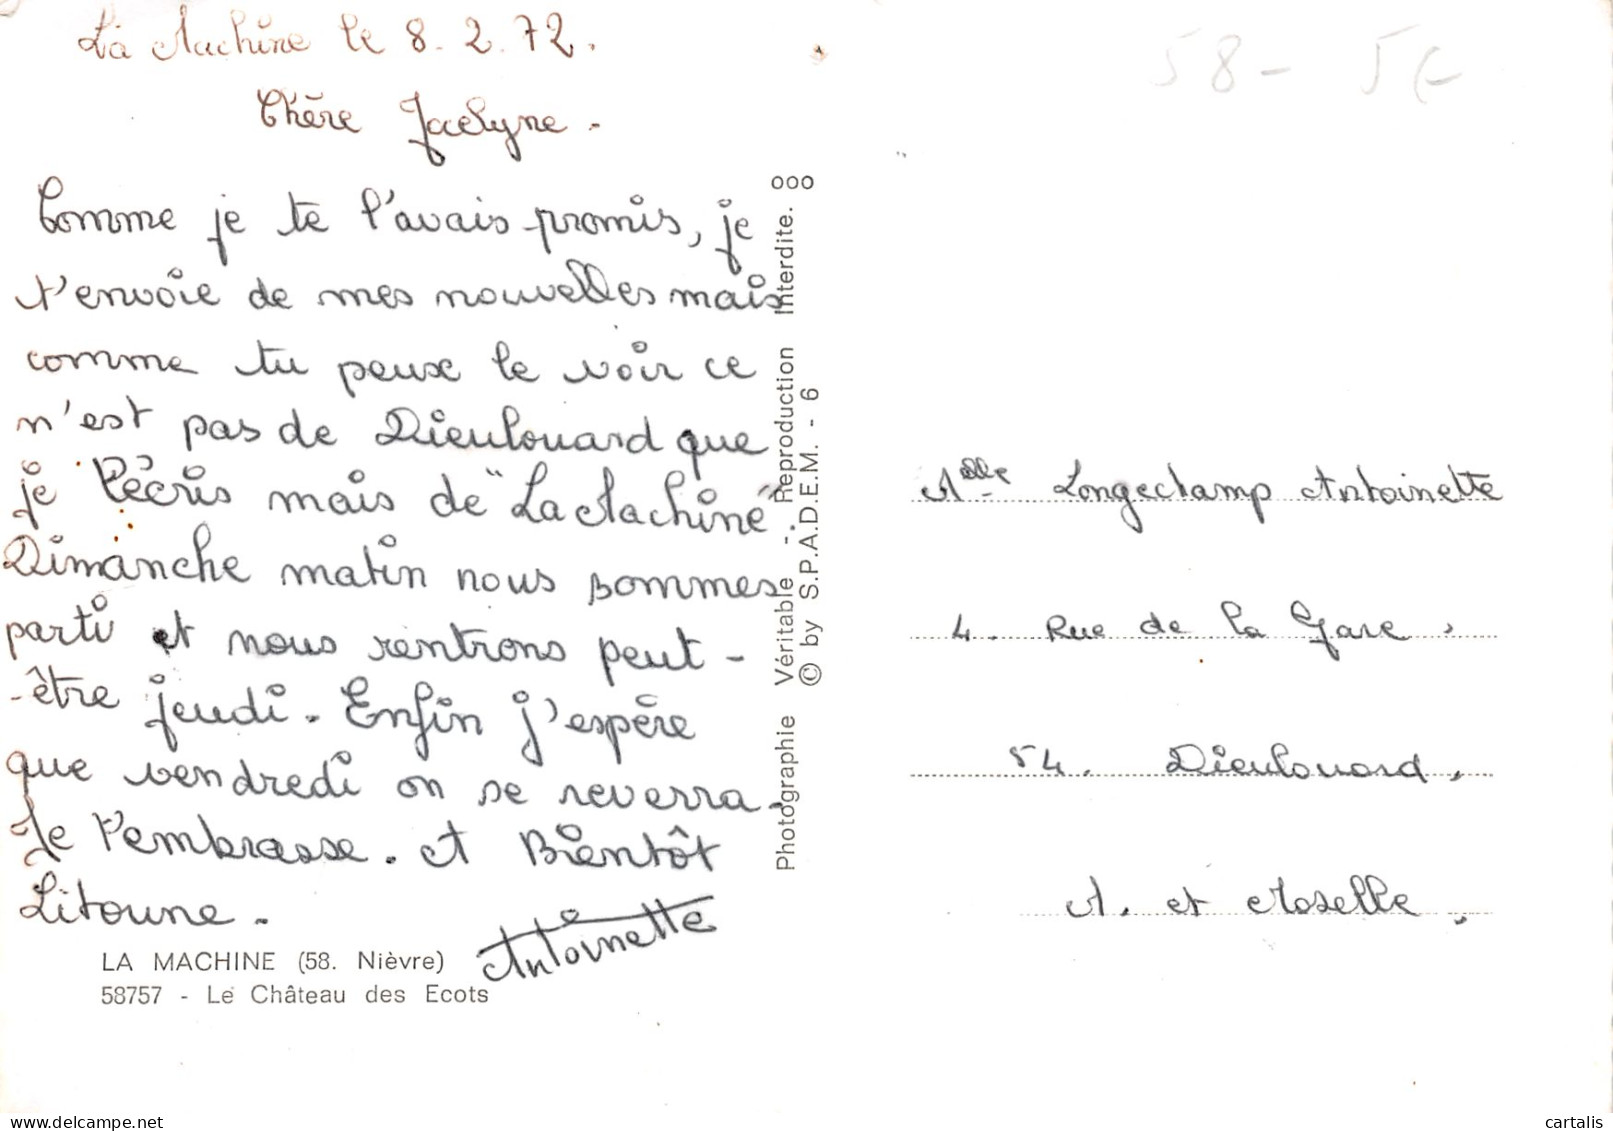 La Machine le 8.2.72.
Chère Jocelyne.
Comme je te l'avais promis, je
t'envoie de mes nouvelles mais
comme tu peux le voir ce
n'est pas de Dieulouard que
je t'écris mais de "La Machine".
Dimanche matin nous sommes
parti et nous rentrons peut-
-être jeudi. Enfin j'espère
que vendredi on se reverra.
Je t'embrasse. et Bientôt
Litoune.
Antoinette
LA MACHINE (58. Nièvre)
58757 - Le Château des Ecots
Photographie Véritable - Reproduction Interdite. ooo
© by S.P.A.D.E.M. - 6
58 - 5€
Melle Longechamp Antoinette
4. Rue de la Gare,
54. Dieulouard.
M. et Moselle.
delcampe.net
cartalis